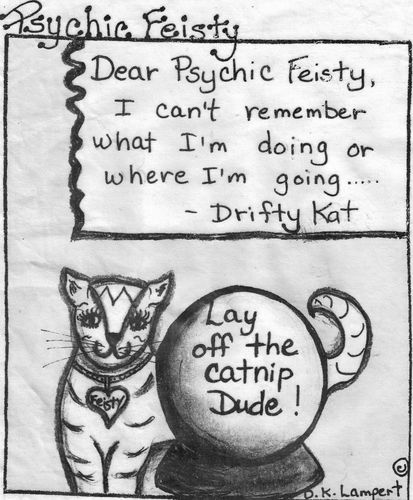 Psychic Feisty
Dear Psychic Feisty,
I can't remember
what I'm doing or
where I'm going.....
- Drifty Kat
Lay
off the
catnip
Dude!
Feisty
©
D.K. Lampert